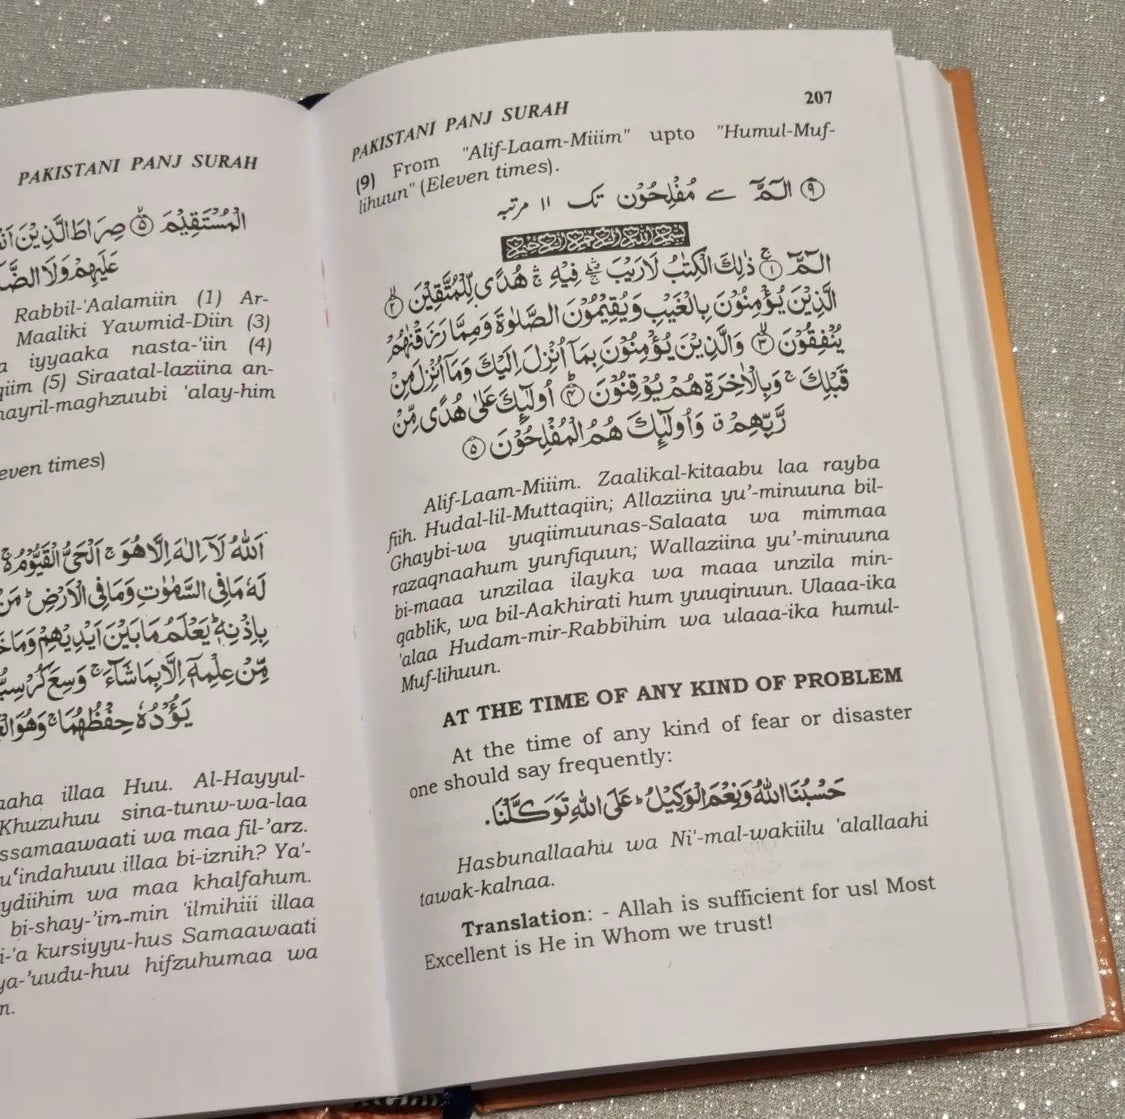 PAKISTANI PANJ SURAH
الْمُسْتَقِيْمَ ۝۵ صِرَاطَ الَّذِيْنَ
عَلَيْهِمْ وَلَا
Rabbil-'Aalamiin (1) Ar-
Maaliki Yawmid-Diin (3)
iyyaaka nasta-'iin (4)
(5) Siraatal-laziina an-
'alay-him
times)
اَللّٰهُ لَاۤ اِلٰهَ اِلَّا هُوَ ۚ اَلْحَيُّ الْقَيُّوْمُ
لَهٗ مَا فِى السَّمٰوٰتِ وَمَا فِى الْاَرْضِ ؕ مَنْ
بِاِذْنِهٖ ؕ يَعْلَمُ مَا بَيْنَ اَيْدِيْهِمْ
مِّنْ عِلْمِهٖۤ اِلَّا بِمَا شَآءَ ۚ وَسِعَ
يَؤُدُهٗ حِفْظُهُمَا ۚ
illaa Huu. Al-Hayyul-
sina-tunw-wa-laa
wa maa fil-'arz.
illaa bi-iznih? Ya'-
wa maa khalfahum.
bi-shay-'im-min 'ilmihiii illaa
kursiyyu-hus Samaawaati
hifzuhumaa wa
PAKISTANI PANJ SURAH 207
(9) From "Alif-Laam-Miiim" upto "Humul-Muf-
lihuun" (Eleven times).
۹ الٓمّٓ سے مُفْلِحُوْن تک ۱۱ مرتبہ
الٓمّٓ ۝۱ ذٰلِكَ الْكِتٰبُ لَا رَيْبَ ۛ فِيْهِ ۛ هُدًى لِّلْمُتَّقِيْنَ ۝۲
الَّذِيْنَ يُؤْمِنُوْنَ بِالْغَيْبِ وَيُقِيْمُوْنَ الصَّلٰوةَ وَمِمَّا رَزَقْنٰهُمْ
يُنْفِقُوْنَ ۝۳ وَالَّذِيْنَ يُؤْمِنُوْنَ بِمَاۤ اُنْزِلَ اِلَيْكَ وَمَاۤ اُنْزِلَ مِنْ
قَبْلِكَ ۚ وَبِالْاٰخِرَةِ هُمْ يُوْقِنُوْنَ ۝۴ اُولٰٓئِكَ عَلٰى هُدًى مِّنْ
رَّبِّهِمْ ۗ وَاُولٰٓئِكَ هُمُ الْمُفْلِحُوْنَ ۝۵
Alif-Laam-Miiim. Zaalikal-kitaabu laa rayba
fiih. Hudal-lil-Muttaqiin; Allaziina yu'-minuuna bil-
Ghaybi-wa yuqiimuunas-Salaata wa mimmaa
razaqnaahum yunfiquun; Wallaziina yu'-minuuna
bi-maaa unzilaa ilayka wa maaa unzila min-
qablik, wa bil-Aakhirati hum yuuqinuun. Ulaaa-ika
'alaa Hudam-mir-Rabbihim wa ulaaa-ika humul-
Muf-lihuun.
AT THE TIME OF ANY KIND OF PROBLEM
At the time of any kind of fear or disaster
one should say frequently:
حَسْبُنَا اللّٰهُ وَنِعْمَ الْوَكِيْلُ ؕ عَلَى اللّٰهِ تَوَكَّلْنَا.
Hasbunallaahu wa Ni'-mal-wakiilu 'alallaahi
tawak-kalnaa.
Translation: - Allah is sufficient for us! Most
Excellent is He in Whom we trust!